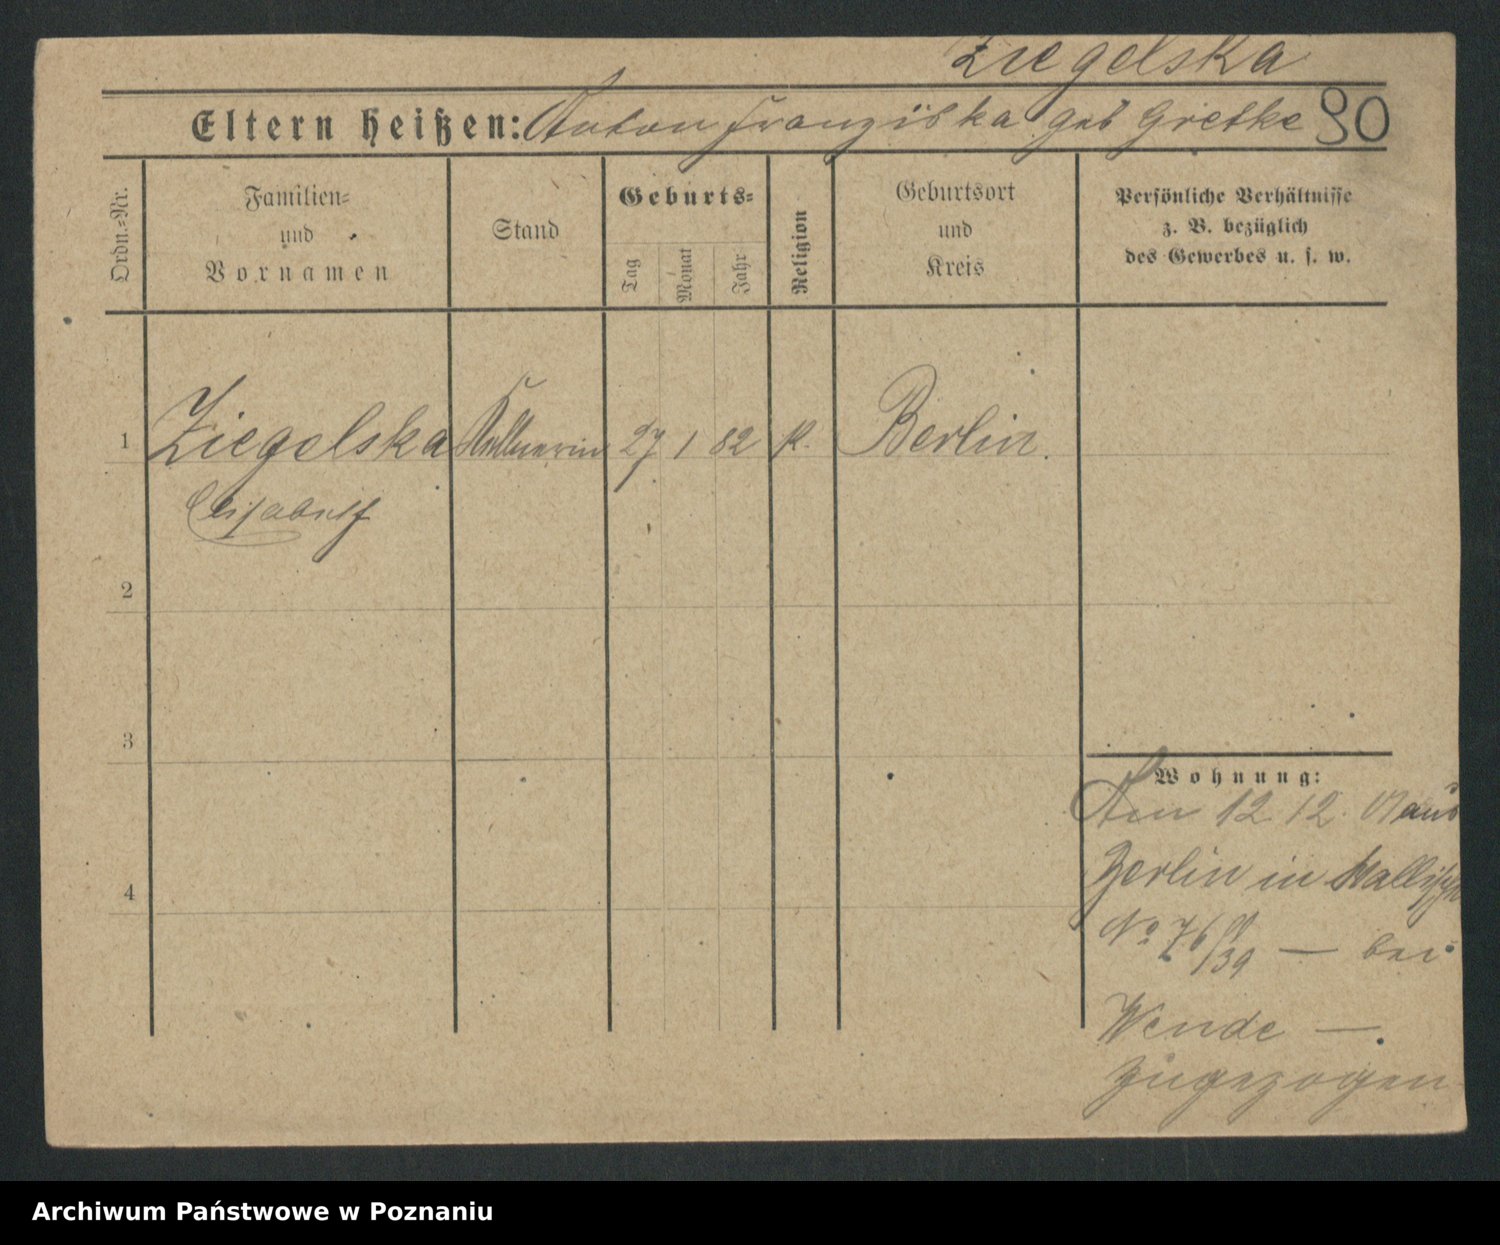 Ziegelska
Eltern heißen: Anton Franziska geb Gretke 90
Ordn.=Nr.
Familien=
und
Vornamen
Stand
Geburts=
Tag
Monat
Jahr
Religion
Geburtsort
und
Kreis
Persönliche Verhältnisse
z. B. bezüglich
des Gewerbes u. s. w.
1 Ziegelska Kellnerin 27 1 82 K. Berlin.
Elisabeth
2
3
4
Wohnung:
Am 12 12. 07 aus
Berlin in Wallisch
No 76/39 — bei
Wende —.
Zugezogen
Archiwum Państwowe w Poznaniu